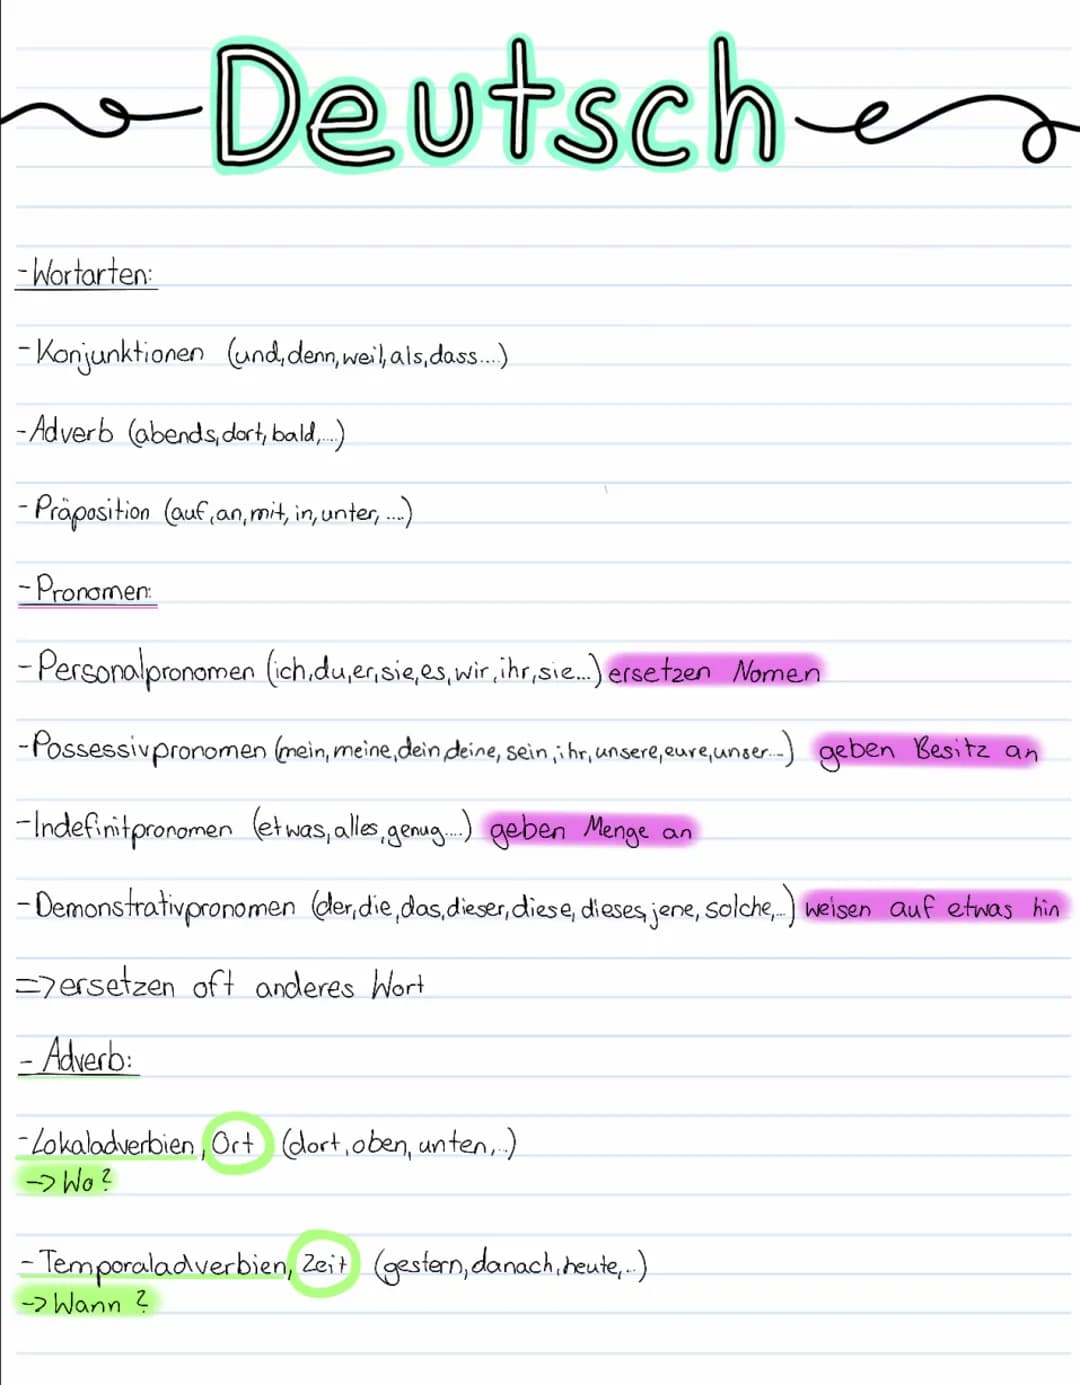 Deutsch
-Wortarten:
-Konjunktionen (und,denn,weil,als,dass....)
-Adverb (abends,dort,bald,...)
-Präposition (auf,an,mit,in,unter,....)
-Pronomen:
-Personalpronomen (ich,du,er,sie,es,wir,ihr,sie...) ersetzen Nomen
-Possessivpronomen (mein,meine,dein,deine,sein,ihr,unsere,eure,unser...) geben Besitz an
-Indefinitpronomen (etwas,alles,genug....) geben Menge an
-Demonstrativpronomen (der,die,das,dieser,diese,dieses,jene,solche,..) weisen auf etwas hin
=>ersetzen oft anderes Wort
- Adverb:
-Lokaladverbien, Ort (dort,oben,unten,..)
-> Wo?
-Temporaladverbien, Zeit (gestern,danach,heute,..)
-> Wann ?